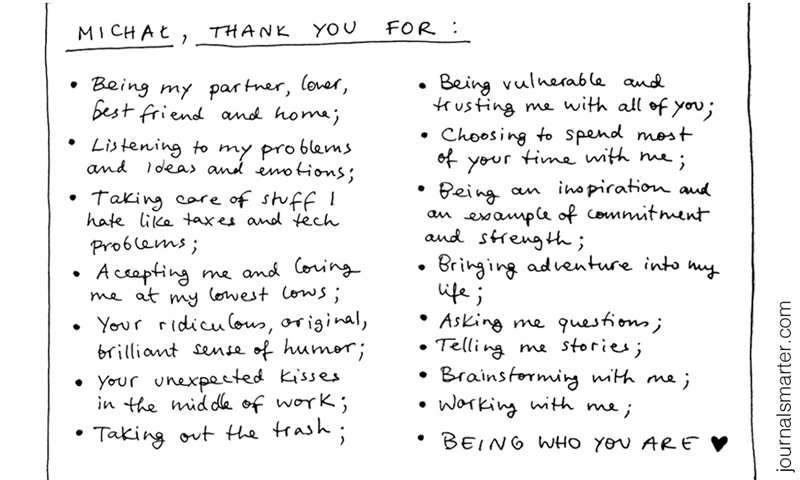 MICHAŁ, THANK YOU FOR:
• Being my partner, lover,
best friend and home;
• Listening to my problems
and ideas and emotions;
• Taking care of stuff I
hate like taxes and tech
problems;
• Accepting me and loving
me at my lowest lows;
• Your ridiculous, original,
brilliant sense of humor;
• Your unexpected kisses
in the middle of work;
• Taking out the trash;
• Being vulnerable and
trusting me with all of you;
• Choosing to spend most
of your time with me;
• Being an inspiration and
an example of commitment
and strength;
• Bringing adventure into my
life;
• Asking me questions;
• Telling me stories;
• Brainstorming with me;
• Working with me;
• BEING WHO YOU ARE ♥
journalsmarter.com